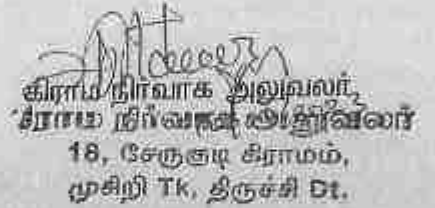 கிராம நிர்வாக அலுவலர்,
கிராம நிர்வாக அலுவலர்
18, சேருகுடி கிராமம்,
முசிறி Tk, திருச்சி Dt.